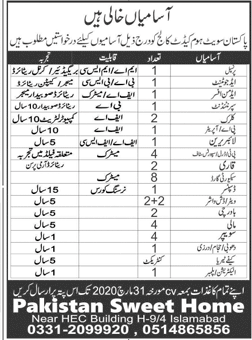 آسامیاں خالی ہیں
پاکستان سویٹ ہوم کیڈٹ کالج کو درج ذیل آسامیوں کیلئے درخواستیں مطلوب ہیں
آسامیاں تعداد قابلیت تجربہ
پرنسپل 1 ایم اے/ایم ایس سی بریگیڈیئر/کرنل ریٹائرڈ
ایڈجوٹینٹ 1 بی اے/بی ایس سی میجر/کیپٹن ریٹائرڈ
ایڈمن آفیسر 1 ایف اے/میٹرک ریٹائرڈ صوبیدار میجر
سپرنٹنڈنٹ 1 بی اے ریٹائرڈ صوبیدار/10 سال
کلرک 2 ایف اے کمپیوٹر لٹریٹ 10 سال
پی اے/آپریٹر 1 ایف اے 10 سال
لائبریرین 1 ایف اے 5 سال
4 میٹرک متعلقہ فیلڈ میں تجربہ
قاری 2
سیکیورٹی گارڈ 8 میٹرک ریٹائرڈ آرمی پرسن
ڈسپنسر 1 نرسنگ کورس 15 سال
ویٹر/ڈش واشر 2+2 5 سال
باورچی 2 5 سال
مالی 4 5 سال
سویپر 4 1 سال
دھوبی/حجام/درزی 1 1 سال
1 کنٹریکٹ 5 سال
الیکٹریشن/پلمبر 1 1 سال
اپنے تمام کاغذات بمعہ CV مورخہ 31 مارچ 2020 تک اس پتہ پر ارسال کریں
Pakistan Sweet Home
Near HEC Building H-9/4 Islamabad
0331-2099920 , 0514865856